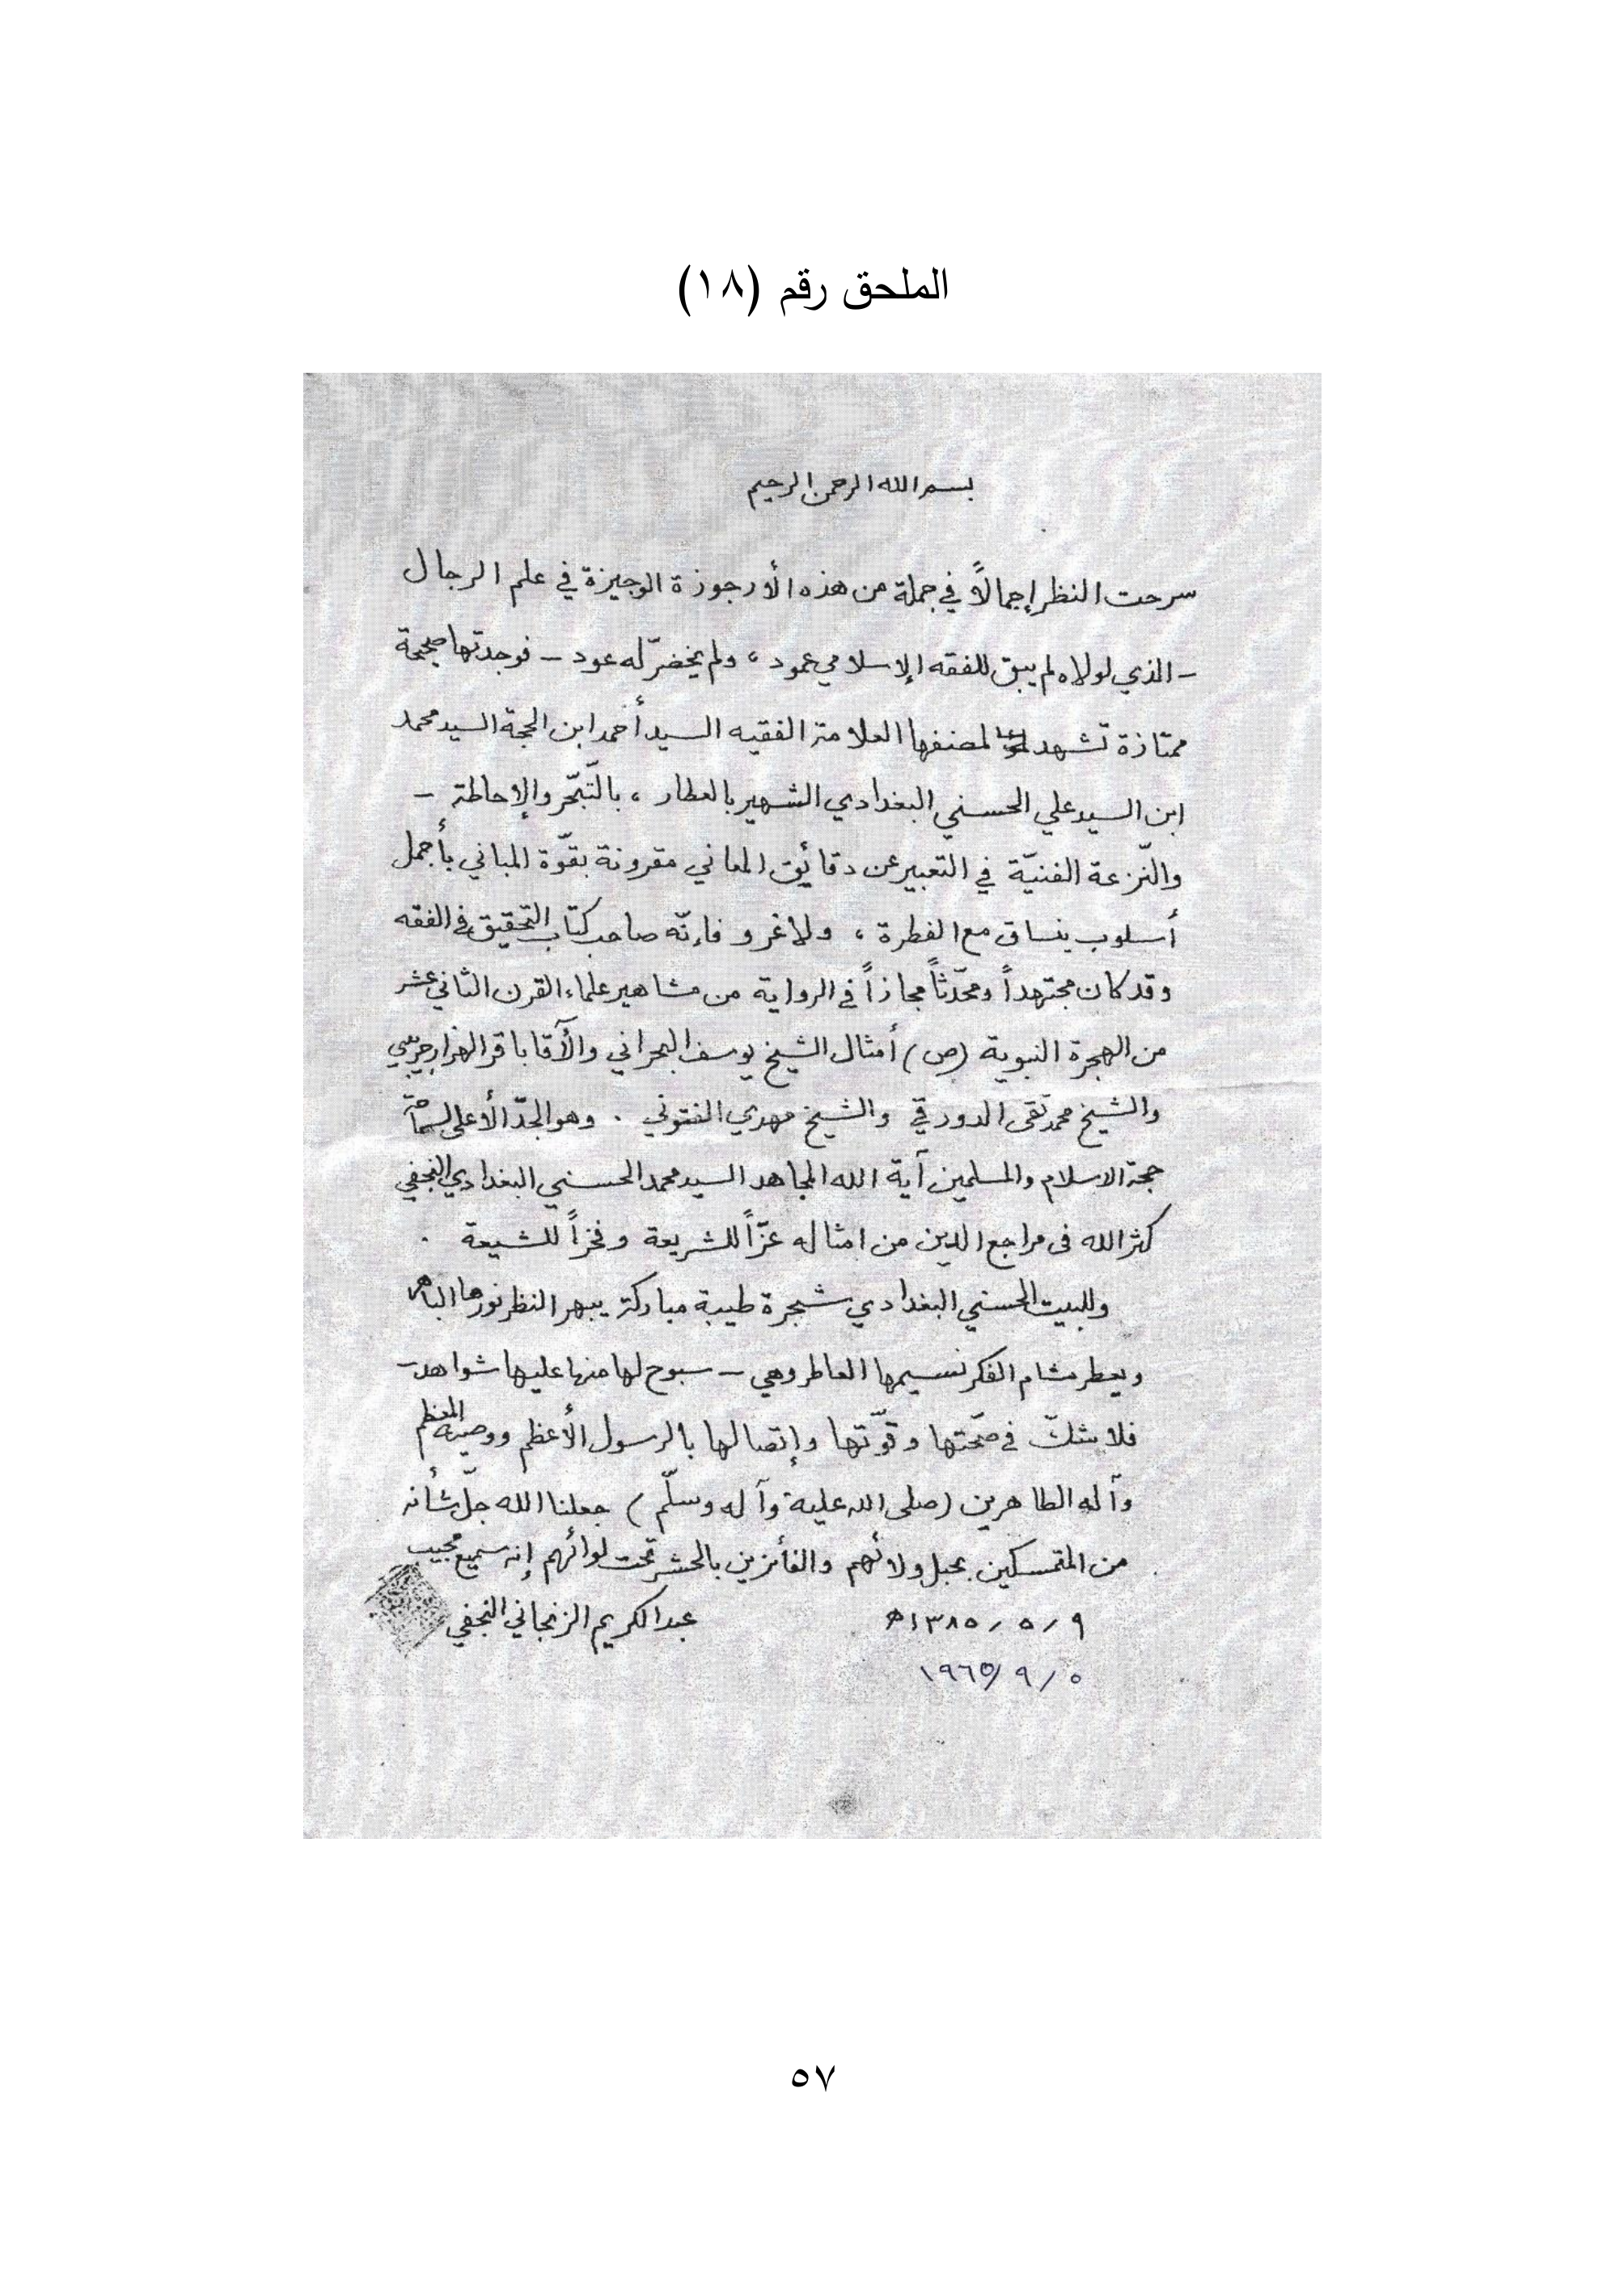 الملحق رقم (١٨)
بسم الله الرحمن الرحيم
سرحت النظر إجمالاً في جملة من هذه الأورجوزة الوجيزة في علم الرجال
– الذي لولاه لم يبق للفقه الإسلامي عمود ، ولم يخضرّ له عود – فوجدتها صحيحة
ممتازة تشهد لمصنفها العلامة الفقيه السيد أحمد ابن الحجة السيد محمد
ابن السيد علي الحسني البغدادي الشهير بالعطار ، بالتّبحّر والإحاطة –
والنّزعة الفنيّة في التعبير عن دقائق المعاني مقرونة بقوّة المباني بأجمل
أسلوب ينساق مع الفطرة ، ولا غرو فإنّه صاحب كتاب التحقيق في الفقه
وقد كان مجتهداً ومحدّثاً مجازاً في الرواية من مشاهير علماء القرن الثاني عشر
من الهجرة النبوية (ص) أمثال الشيخ يوسف البحراني والآقا باقر الهزارجريبي
والشيخ محمد تقى الدورقي والشيخ مهدي الفتوني . وهو الجدّ الأعلى لسماحة
حجة الاسلام والمسلمين آية الله المجاهد السيد محمد الحسني البغدادي النجفي
كثر الله فى مراجع الدين من امثاله عزّاً للشريعة وفخراً للشيعة .
وللبيت الحسني البغدادي شجرة طيبة مباركة يبهر النظر نورها الباهر
ويعطر مشام الفكر نسيمها العاطر وهي – سبوح لها منها عليها شواهد –
فلا شكّ في صحّتها وقوّتها وإتصالها بالرسول الأعظم ووصيه المعظم
وآله الطاهرين (صلى الله عليه وآله وسلّم) جعلنا الله جلّ شأنه
من المتمسكين بحبل ولائهم والفائزين بالحشر تحت لوائهم إنه سميع مجيب
٩ / ٥ / ١٣٨٥ه عبد الكريم الزنجاني النجفي
٥ / ٩ / ١٩٦٥
٥٧